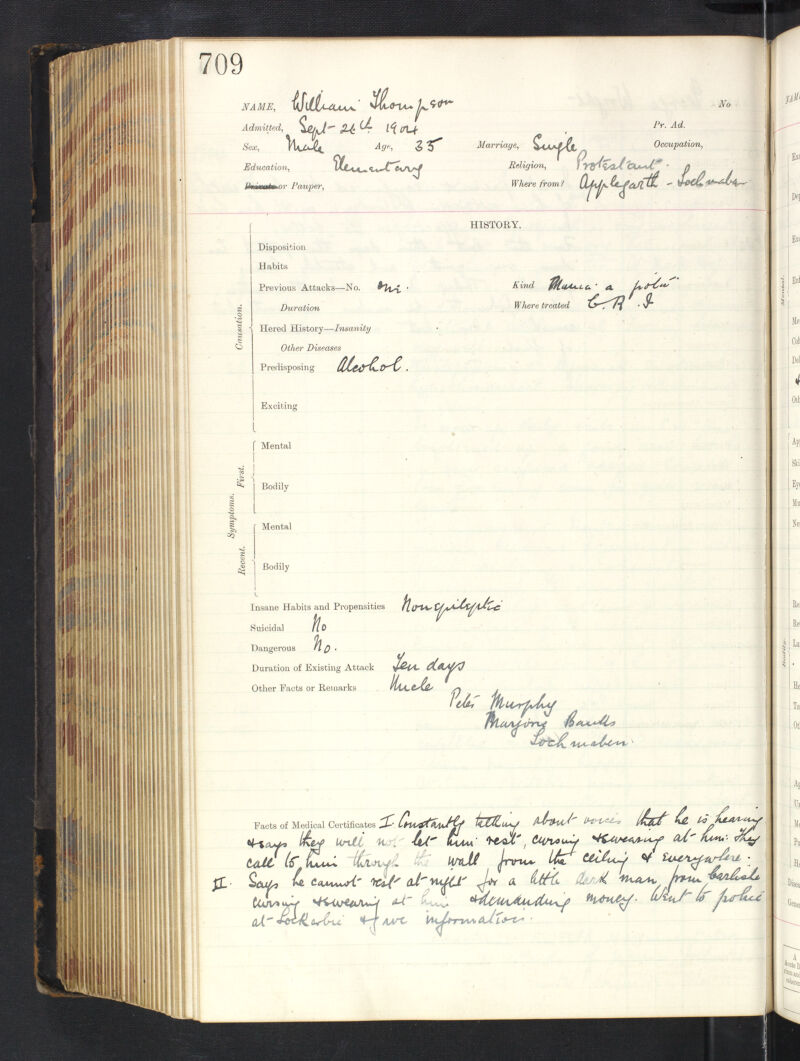 709
NAME, William Thompson No
Admitted, Sept 26th 1904 Pr. Ad.
Sex, Male Age, 35 Marriage, Single Occupation,
Education, Elementary Religion, Protestant.
Private or Pauper, Where from? Applegarth - Lochmaben
HISTORY.
Disposition
Habits
Previous Attacks—No. one. Kind Mania a potu
Duration Where treated C. R. I.
Hered History—Insanity
Other Diseases
Causation.
Predisposing Alcohol.
Exciting
Mental
First.
Bodily
Symptoms.
Mental
Recent.
Bodily
Insane Habits and Propensities Non epileptic
Suicidal No
Dangerous No.
Duration of Existing Attack Ten days
Other Facts or Remarks Uncle
Peter Murphy
Marjorie Banks
Lochmaben.
Facts of Medical Certificates I. Constantly talking about voices that he is hearing
& says they will not let him rest, cursing & swearing at him: They
call to him through the wall from the ceiling & everywhere.
II. Says he cannot rest at night for a little dark man from Carlisle
cursing & swearing at him & demanding money. Went to police
at Lockerbie & gave information.